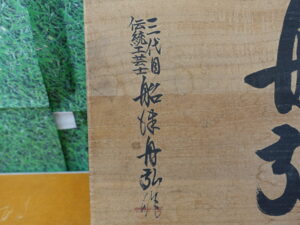 三代目
伝統工芸士
船津舟弘作
舟弘